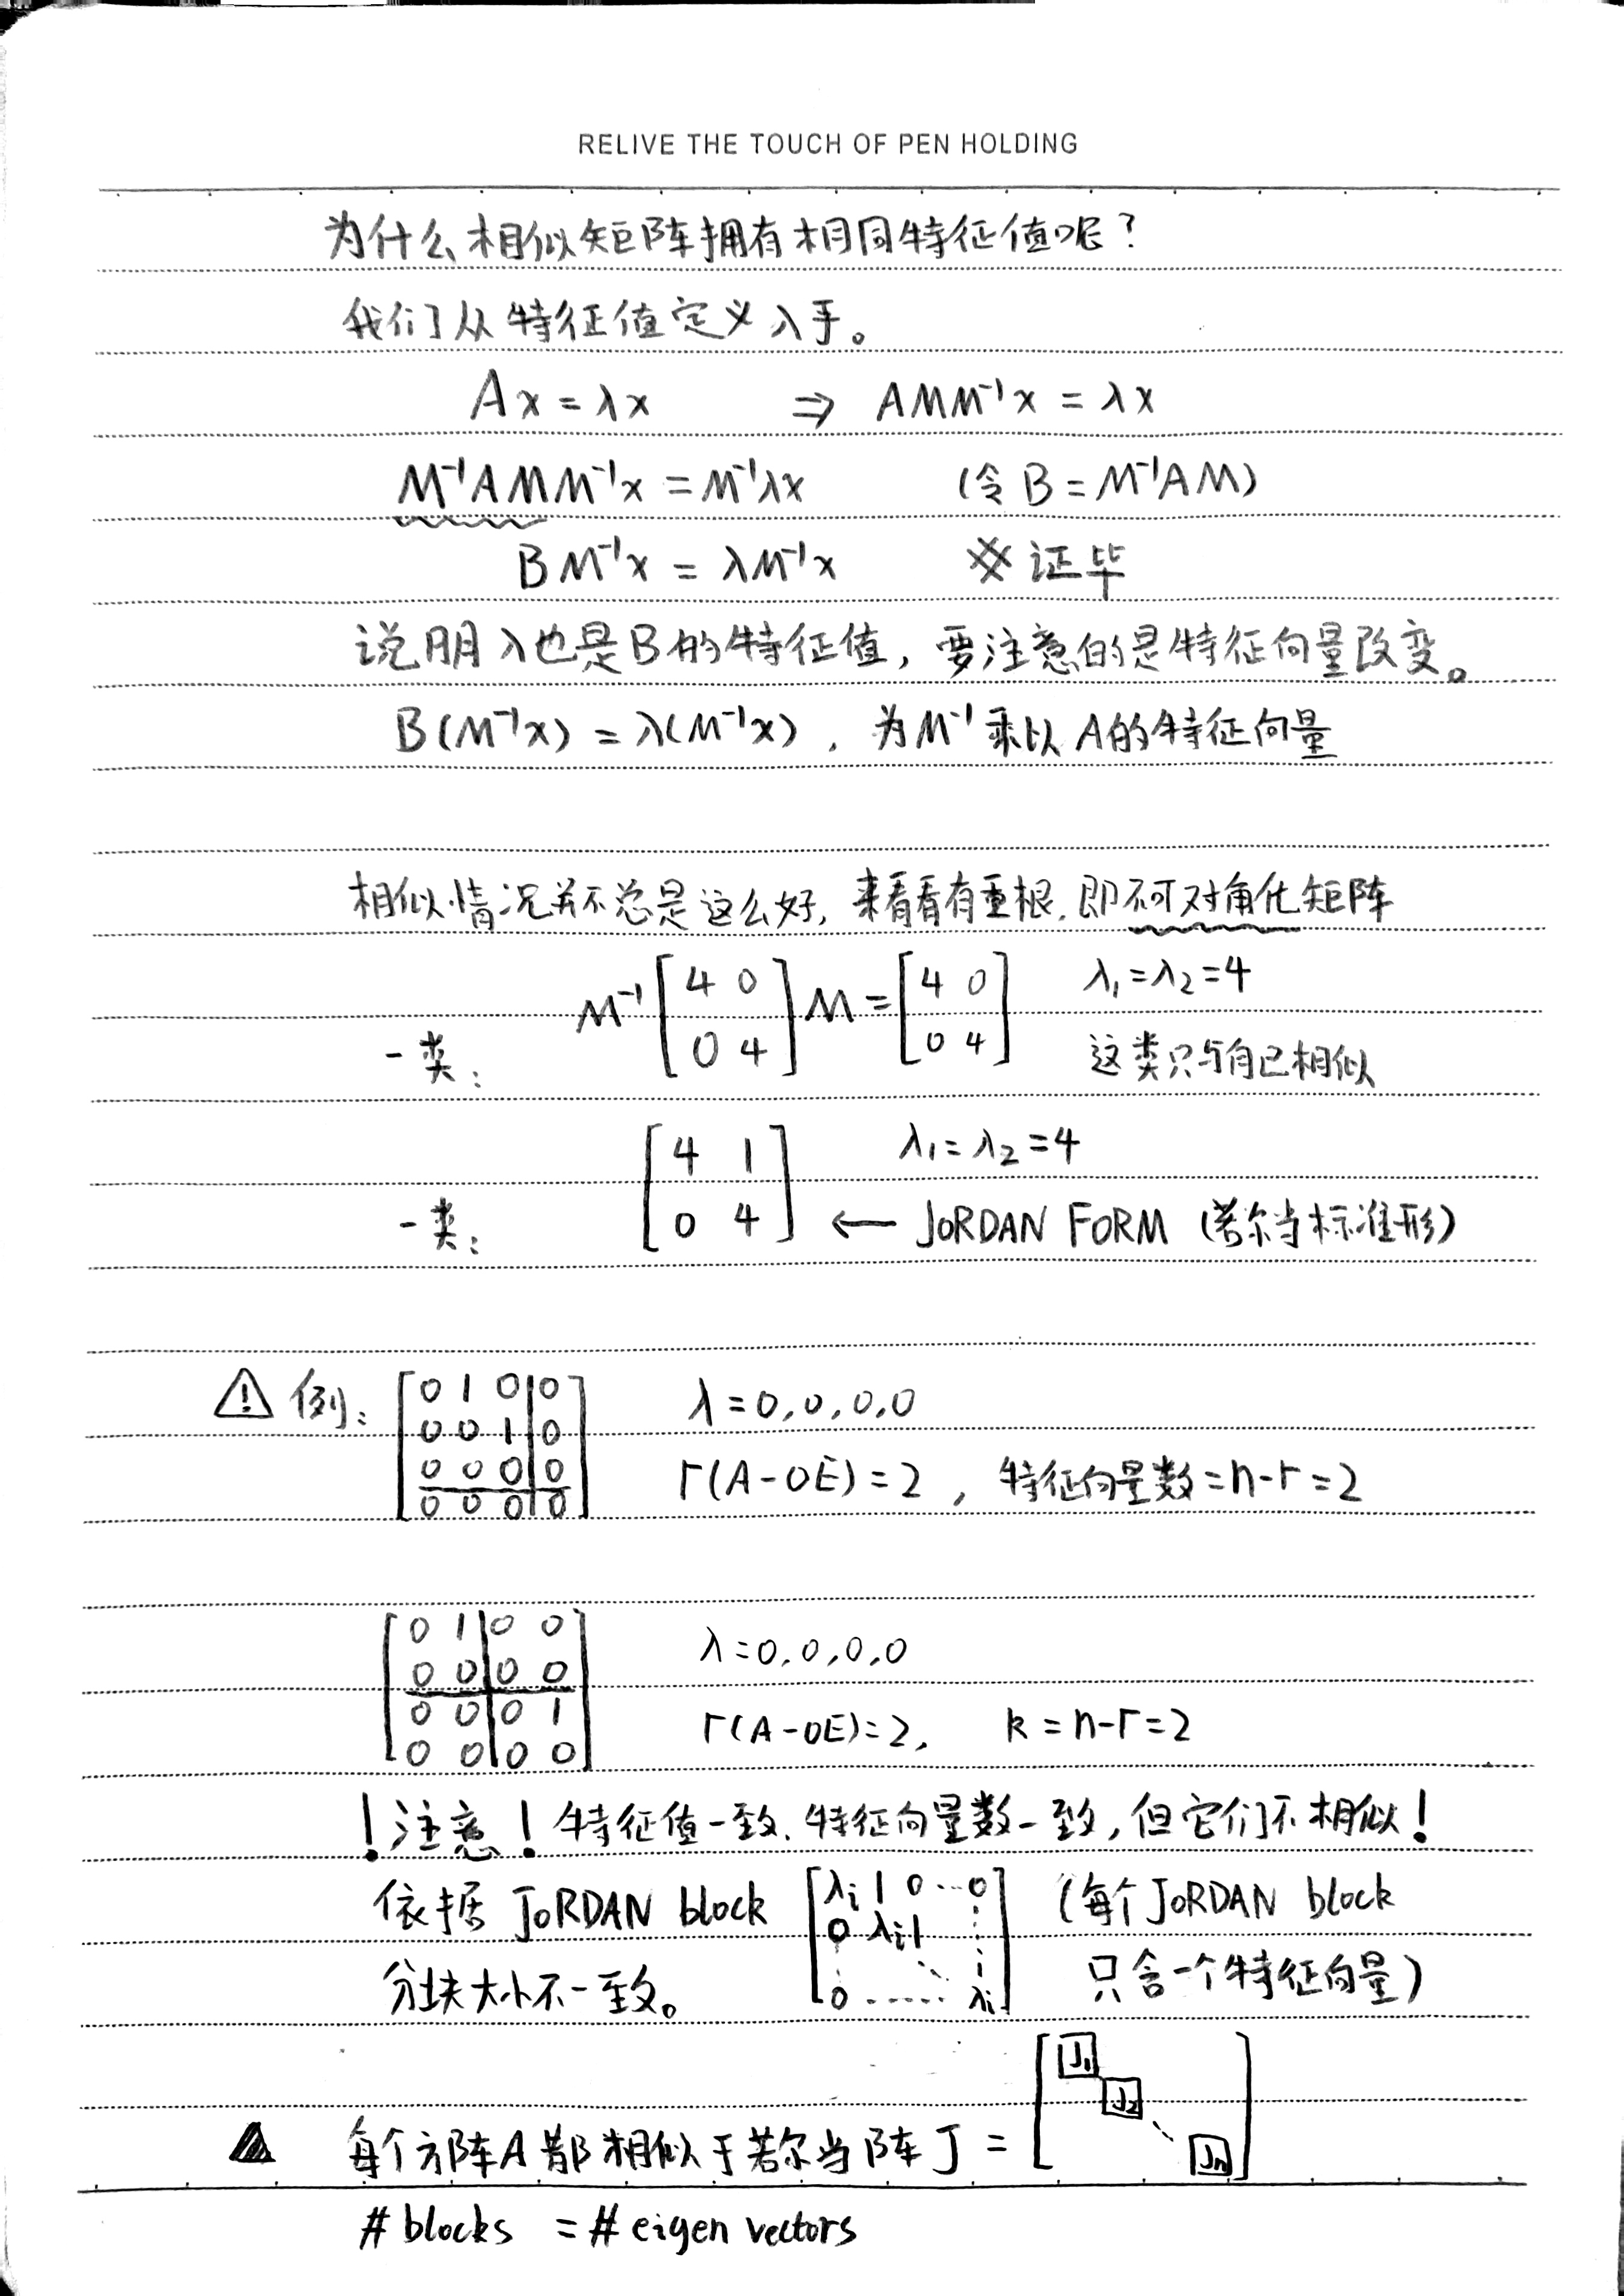 RELIVE THE TOUCH OF PEN HOLDING
为什么相似矩阵拥有相同特征值呢?
我们从特征值定义入手。
Ax = λx ⇒ AMM⁻¹x = λx
M⁻¹AMM⁻¹x = M⁻¹λx (令 B = M⁻¹AM)
BM⁻¹x = λM⁻¹x ※ 证毕
说明λ也是B的特征值, 要注意的是特征向量改变。
B(M⁻¹x) = λ(M⁻¹x), 为M⁻¹乘以A的特征向量
相似情况并不总是这么好, 来看看有重根, 即不可对角化矩阵
一类: M⁻¹ [4 0; 0 4] M = [4 0; 0 4] λ₁=λ₂=4
这类只与自己相似
一类: [4 1; 0 4] λ₁=λ₂=4
← JORDAN FORM (若尔当标准形)
⚠ 例: [0 1 0 | 0; 0 0 1 | 0; 0 0 0 | 0; 0 0 0 | 0] λ = 0,0,0,0
r(A-0E) = 2, 特征向量数 = n-r = 2
[0 1 | 0 0; 0 0 | 0 0; 0 0 | 0 1; 0 0 | 0 0] λ = 0,0,0,0
r(A-0E) = 2, k = n-r = 2
!注意! 特征值一致、特征向量数一致, 但它们不相似!
依据 JORDAN block [λi 1 0 ... 0; 0 λi 1 ⋮; ⋮ ⋱ 1; 0 ..... λi] (每个JORDAN block
分块大小不一致。 只含一个特征向量)
▲ 每个方阵A都相似于若尔当阵 J = [J₁ J₂ ⋱ Jn]
# blocks = # eigen vectors